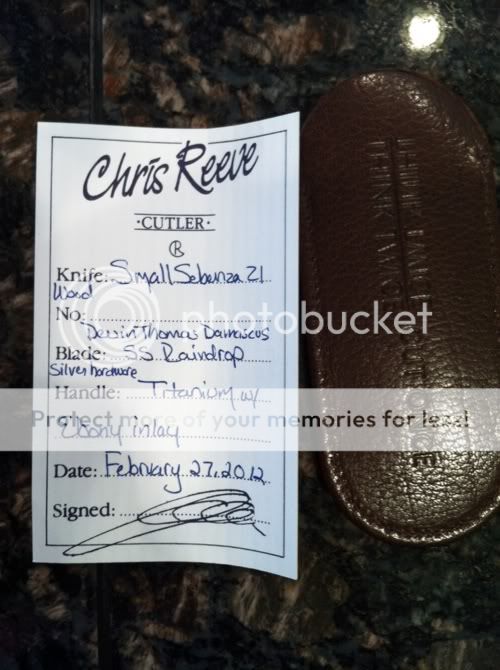 Chris Reeve
·CUTLER·
R
Knife: Small Sebenza 21
Wood
No:
Devin Thomas Damascus
Blade: SS Raindrop
Silver hardware
Handle: Titanium w/
Ebony inlay
Date: February 27, 2012
Signed:
photobucket
Protect more of your memories for less!
THINK TWICE